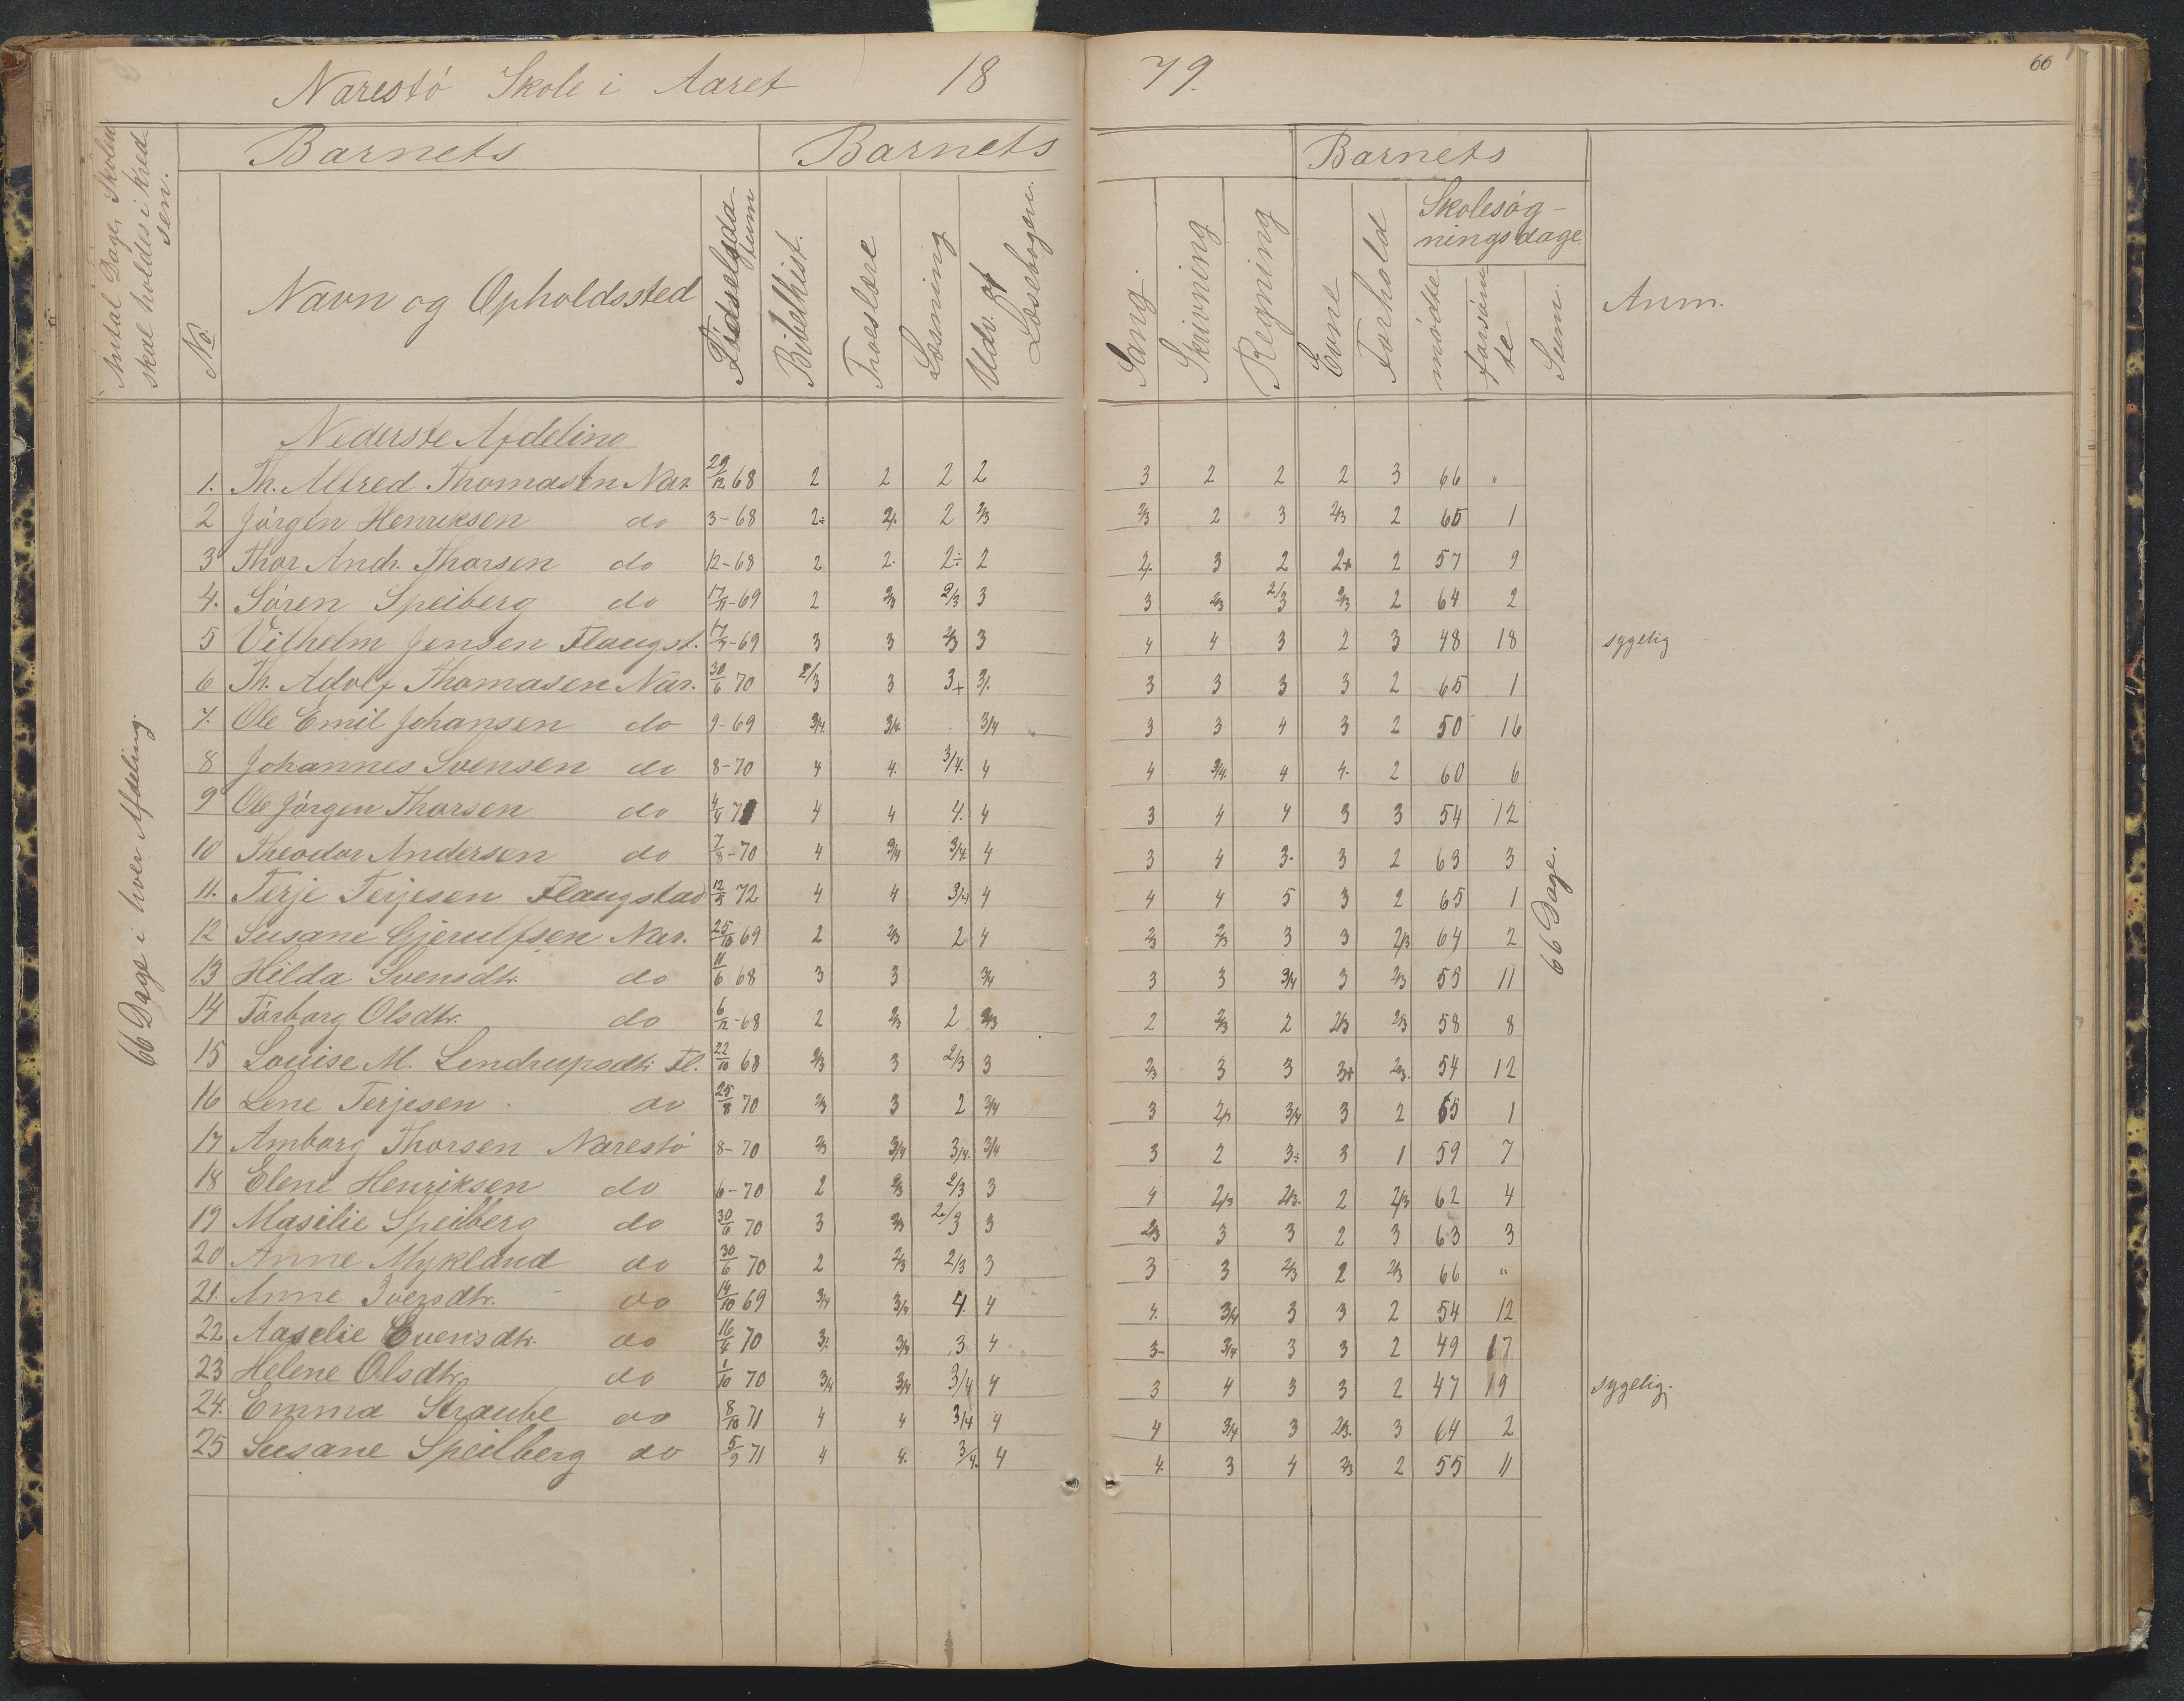 Narestö Skole i Aaret 1879.
66
Antal Dage, Skolen skal holdes i Kredsen.
No.
Barnets
Navn og Opholdssted
Födselsdatum
Barnets
Bibelhist.
Troeslære
Læsning
Udv. af Læsebogen.
Sang.
Skrivning
Regning
Barnets
Evne
Forhold
Skolesøgningsdage.
mödte
forsömte
Sum.
Anm.
66 Dage i hver Afdeling.
Nederste Afdeling
1. Th. Alfred Thomassen Nar. 29/12 68 2 2 2 2 3 2 2 2 3 66 "
2 Jörgen Henriksen do 3-68 2÷ 2/. 2 2/3 2/3 2 3 2/3 2 65 1
3 Thor Andr. Thorsen do 12-68 2 2. 2÷ 2 2/. 3 2 2+ 2 57 9
4. Sören Speiberg do 17/11-69 2 2/3 2/3 3 3 2/3 2/3 2/3 2 64 2
5 Vilhelm Jensen Flaugst. 17/7-69 3 3 2/3 3 4 4 3 2 3 48 18 sygelig
6 Th. Adolf Thomasen Nar. 30/6 70 2/3 3 3+ 3/. 3 3 3 3 2 65 1
7. Ole Emil Johansen do 9-69 3/4 3/4 3/4 3 3 4 3 2 50 16
8 Johannes Svensen do 8-70 4 4. 3/4. 4 4 3/4. 4 4. 2 60 6
9 Ole Jörgen Thorsen do 4/4 71 4 4 4. 4 3 4 4 3 3 54 12
10 Theodor Andersen do 7/8-70 4 3/4 3/4 4 3 4 3- 3 2 63 3
11. Terje Terjesen Flaugstad 12/5 72 4 4 3/4 4 4 4 5 3 2 65 1
12 Susane Gjerulfsen Nar. 25/10 69 2 2/3 2 4 2/3 2/3 3 3 2/3 64 2
13 Hilda Svensdtr. do 11/6 68 3 3 3/4 3 3 3/4 3 2/3 55 11
14 Tårborg Olsdtr. do 6/12-68 2 2/3 2 2/3 2 2/3 2 2/3 2/3 58 8
15 Louise M. Lendrupsdtr. Fl. 22/10 68 2/3 3 2/3 3 2/3 3 3 3+ 2/3. 54 12
16 Lene Terjesen do 25/8 70 2/3 3 2 3/4 3 2/3 3/4 3 2 65 1
17 Amborg Thorsen Narestö 8-70 2/3 3/4 3/4. 3/4 3 2 3÷ 3 1 59 7
18 Elene Henriksen do 6-70 2 2/3 2/3 3 4 2/3 2/3. 2 2/3 62 4
19 Masilie Speiberg do 30/6 70 3 2/3 2/3 3 2/3 3 3 2 3 63 3
20 Anne Mykland do 30/6 70 2 2/3 2/3 3 3 3 2/3 2 2/3 66 "
21. Anne Iversdtr. do 14/10 69 3/4 3/4 4. 4 4. 3/4 3 3 2 54 12
22 Aaselie Evensdtr. do 16/4 70 3/. 3/4 3 4 3- 3/4 3 3 2 49 17
23 Helene Olsdtr. do 1/10 70 3/4 3/4 3/4 4 3 4 3 3 2 47 19 sygelig.
24. Emma Straube do 8/10 71 4 4 3/4 4 4 3/4 3 2/3. 3 64 2
25 Susane Speilberg do 5/9 71 4 4. 3/4. 4 4. 3 4 2/3 2 55 11
66 Dage.